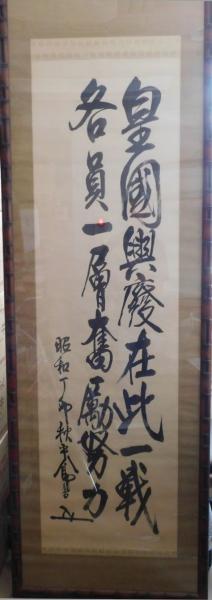 皇國興廢在此一戰
各員一層奮勵努力
昭和丁卯秋